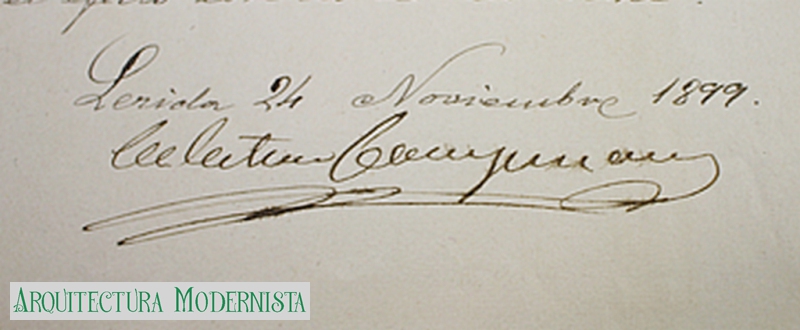 Lerida 24 Noviembre 1899.
Celestino Campmany
ARQUITECTURA MODERNISTA